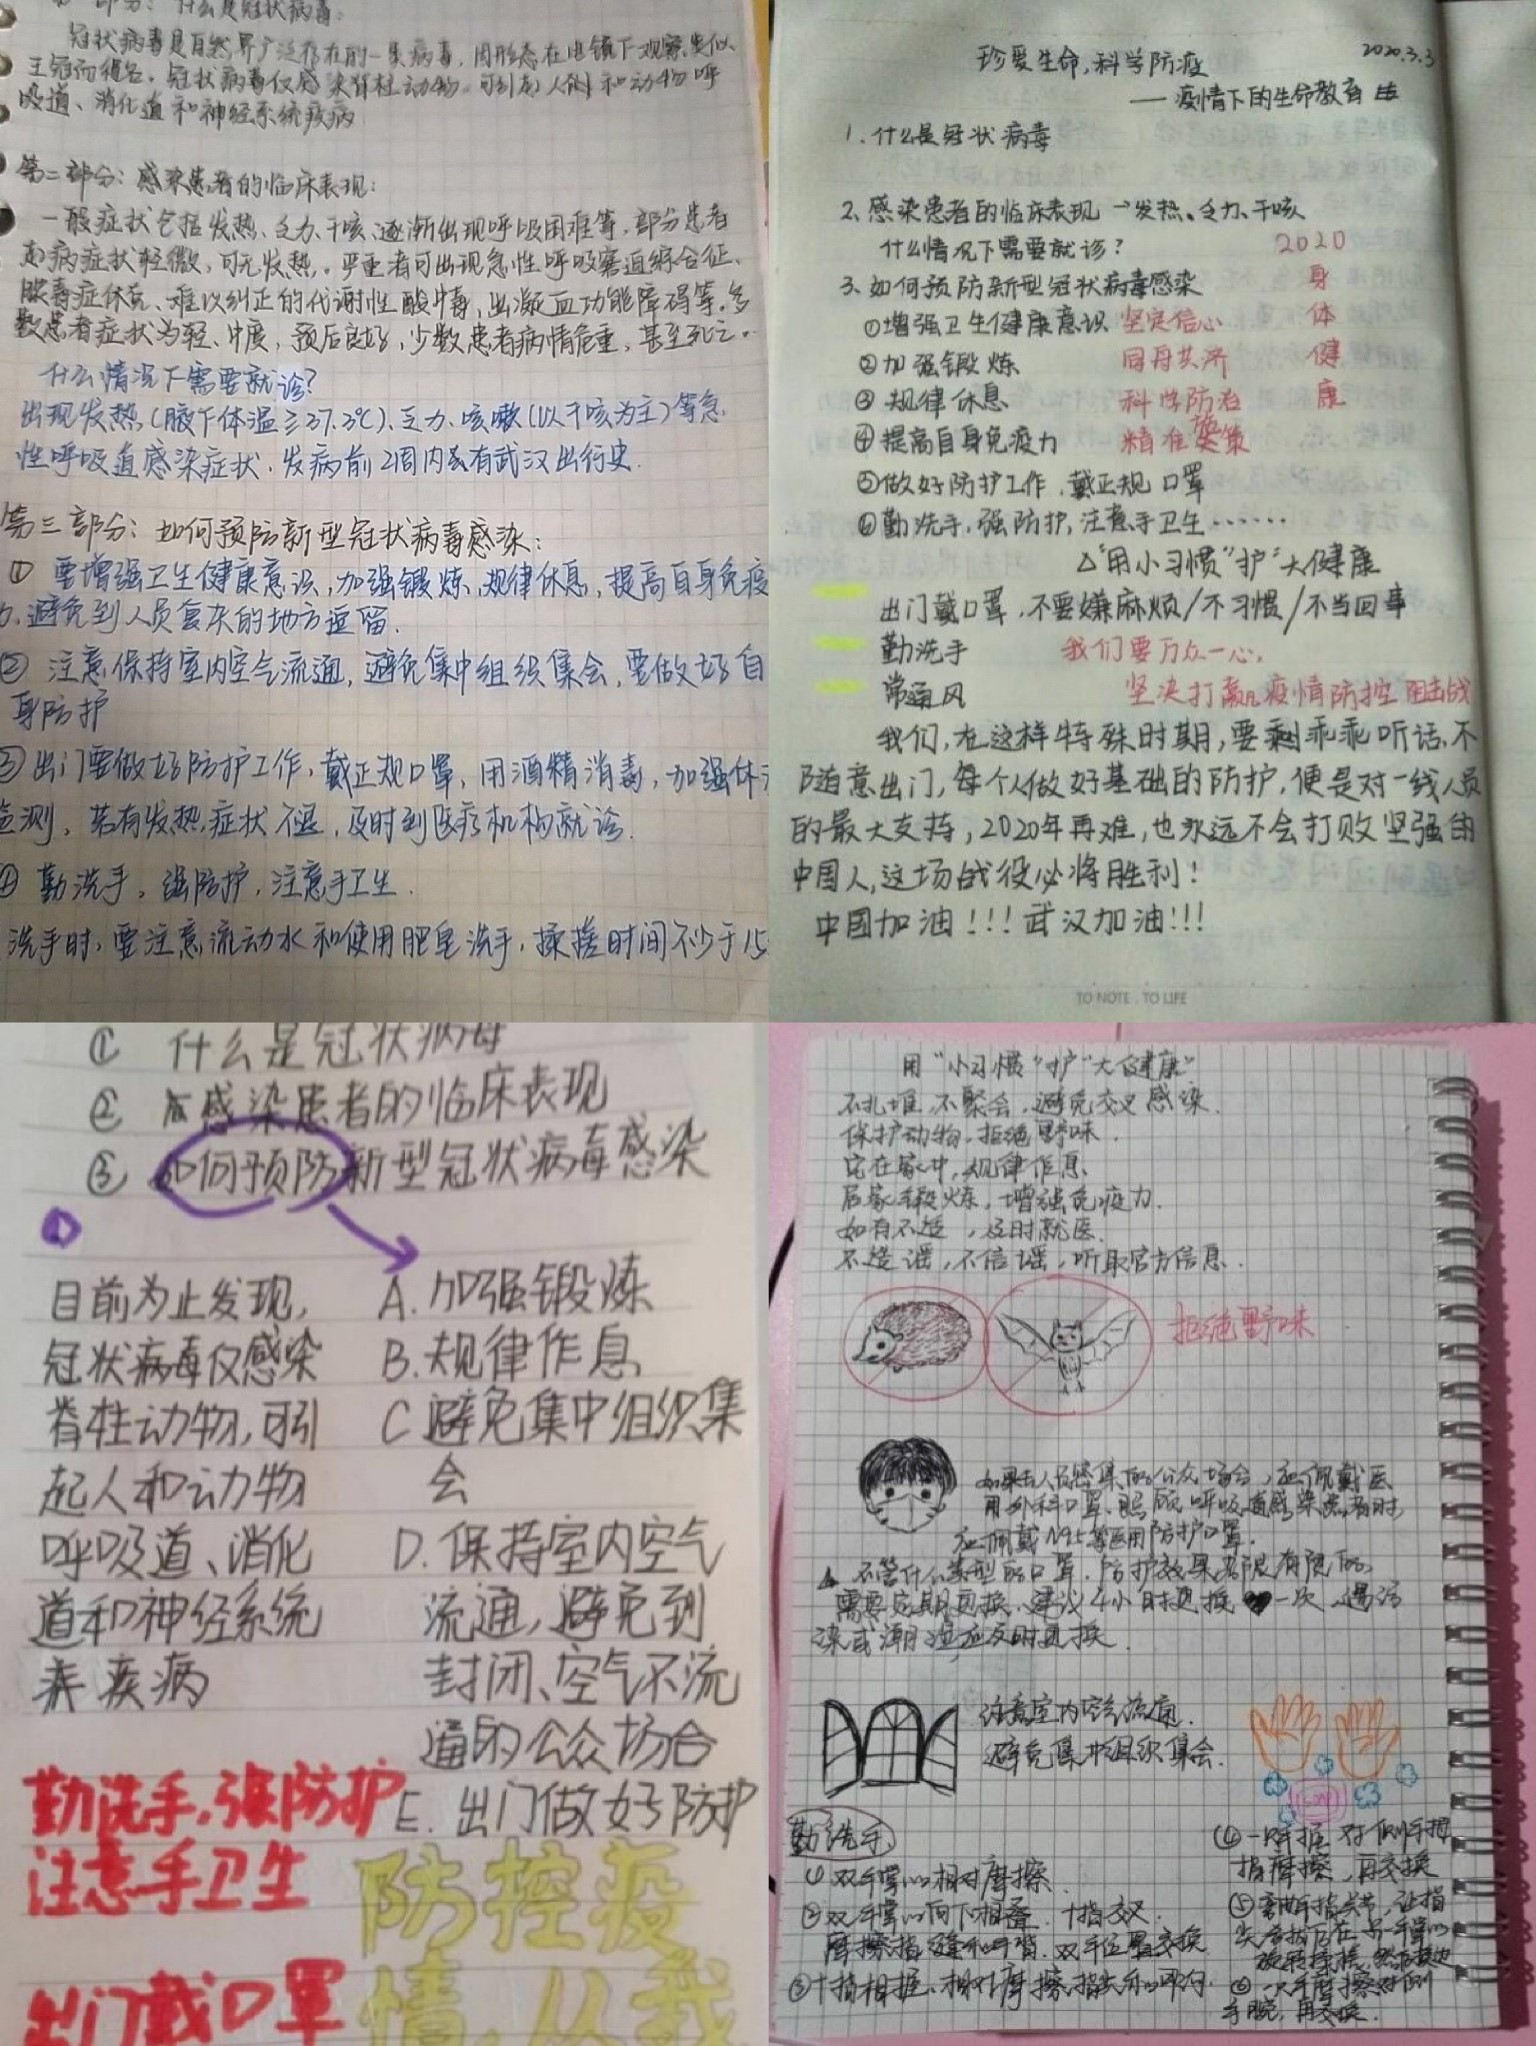 部分：什么是冠状病毒：
冠状病毒是自然界广泛存在的一类病毒，因形态在电镜下观察类似
王冠而得名。冠状病毒仅感染脊柱动物，可引起人侧和动物呼
吸道、消化道和神经系统疾病
第二部分：感染患者的临床表现：
一般症状包括发热、乏力、干咳、逐渐出现呼吸困难等，部分患者
起病症状轻微，可无发热。严重者可出现急性呼吸窘迫综合征、
脓毒症休克、难以纠正的代谢性酸中毒、出凝血功能障碍等。多
数患者症状为轻、中度，预后良好，少数患者病情危重，甚至死亡。
什么情况下需要就诊？
出现发热（腋下体温≥37.3℃）、乏力、咳嗽（以干咳为主）等急
性呼吸道感染症状，发病前2周内有武汉出行史.
第三部分：如何预防新型冠状病毒感染：
① 要增强卫生健康意识，加强锻炼、规律休息，提高自身免疫
力，避免到人员复杂的地方逗留.
② 注意保持室内空气流通，避免集中组织集会，要做好自
身防护
③ 出门要做好防护工作，戴正规口罩，用酒精消毒，加强体
监测，若有发热症状不适，及时到医疗机构就诊.
④ 勤洗手，强防护，注意手卫生.
洗手时，要注意流动水和使用肥皂洗手，揉搓时间不少于15
2020.3.3
珍爱生命，科学防疫
——疫情下的生命教育
1.什么是冠状病毒
2、感染患者的临床表现→发热、乏力、干咳
什么情况下需要就诊？ 2020
3、如何预防新型冠状病毒感染 身
①增强卫生健康意识 坚定信心 体
②加强锻炼 同舟共济 健
③规律休息 科学防治 康
④提高自身免疫力 精准施策
⑤做好防护工作，戴正规口罩
⑥勤洗手，强防护，注意手卫生……
△“用小习惯”护“大健康
出门戴口罩，不要嫌麻烦/不习惯/不当回事
勤洗手 我们要万众一心，
常通风 坚决打赢疫情防控阻击战
我们，在这样特殊时期，要乖乖听话，不
随意出门，每个人做好基础的防护，便是对一线人员
的最大支持，2020年再难，也永远不会打败坚强的
中国人，这场战役必将胜利！
中国加油！！！武汉加油！！！
TO NOTE . TO LIFE
① 什么是冠状病毒
② 感染患者的临床表现
③ 如何预防新型冠状病毒感染
①
目前为止发现，
冠状病毒仅感染
脊柱动物，可引
起人和动物
呼吸道、消化
道和神经系统
疾病
A. 加强锻炼
B. 规律作息
C 避免集中组织集
会
D. 保持室内空气
流通，避免到
封闭、空气不流
通的公众场合
E. 出门做好防护
勤洗手，强防护
注意手卫生
出门戴口罩
防控疫
情，从我
用“小习惯”护“大健康”
不扎堆，不聚会，避免交叉感染.
保护动物，拒绝野味.
宅在家中，规律作息
居家锻炼，增强免疫力.
如有不适，及时就医.
不造谣，不信谣，听取官方信息.
拒绝野味
如果去人员密集的公众场合，应佩戴医
用外科口罩，照顾呼吸道感染患者时，
应佩戴N95等医用防护口罩.
不管什么类型的口罩，防护效果都是有限的，
需要定期更换，建议4小时更换一次，遇污
染或潮湿应及时更换.
注意室内空气流通.
避免集中组织集会.
SOAP
勤洗手
①双手掌心相对摩擦.
②双手掌心向下相叠，十指交叉.
摩擦指缝和手背，双手位置交换
③十指相握，相对摩擦
④一只手握
指摩擦，再交换
⑥一只手摩擦
手腕，再交换.